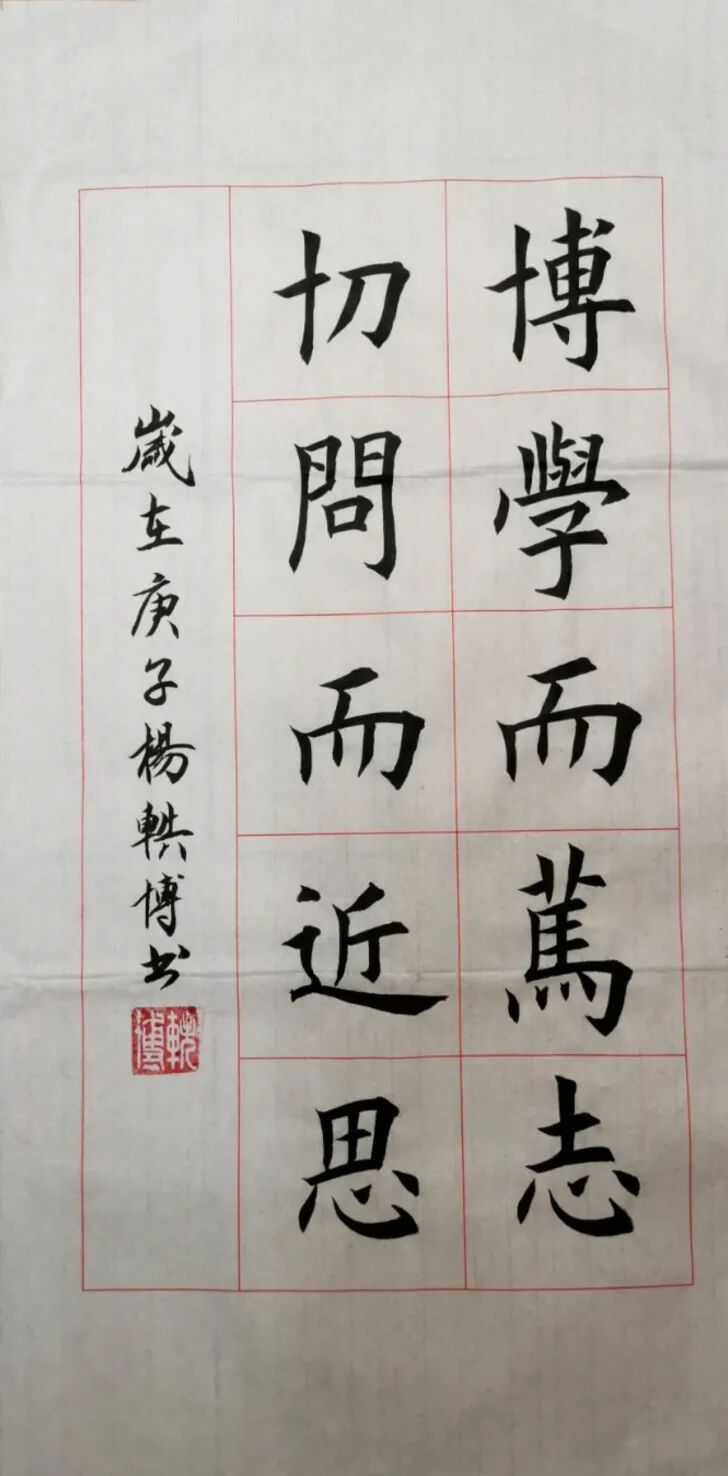 博學而篤志
切問而近思
歲在庚子楊軼博書
軼博